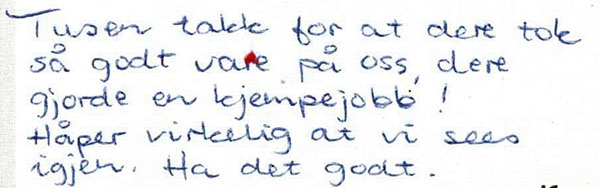 Tusen takk for at dere tok
så godt vare på oss, dere
gjorde en kjempejobb!
Håper virkelig at vi sees
igjen. Ha det godt.